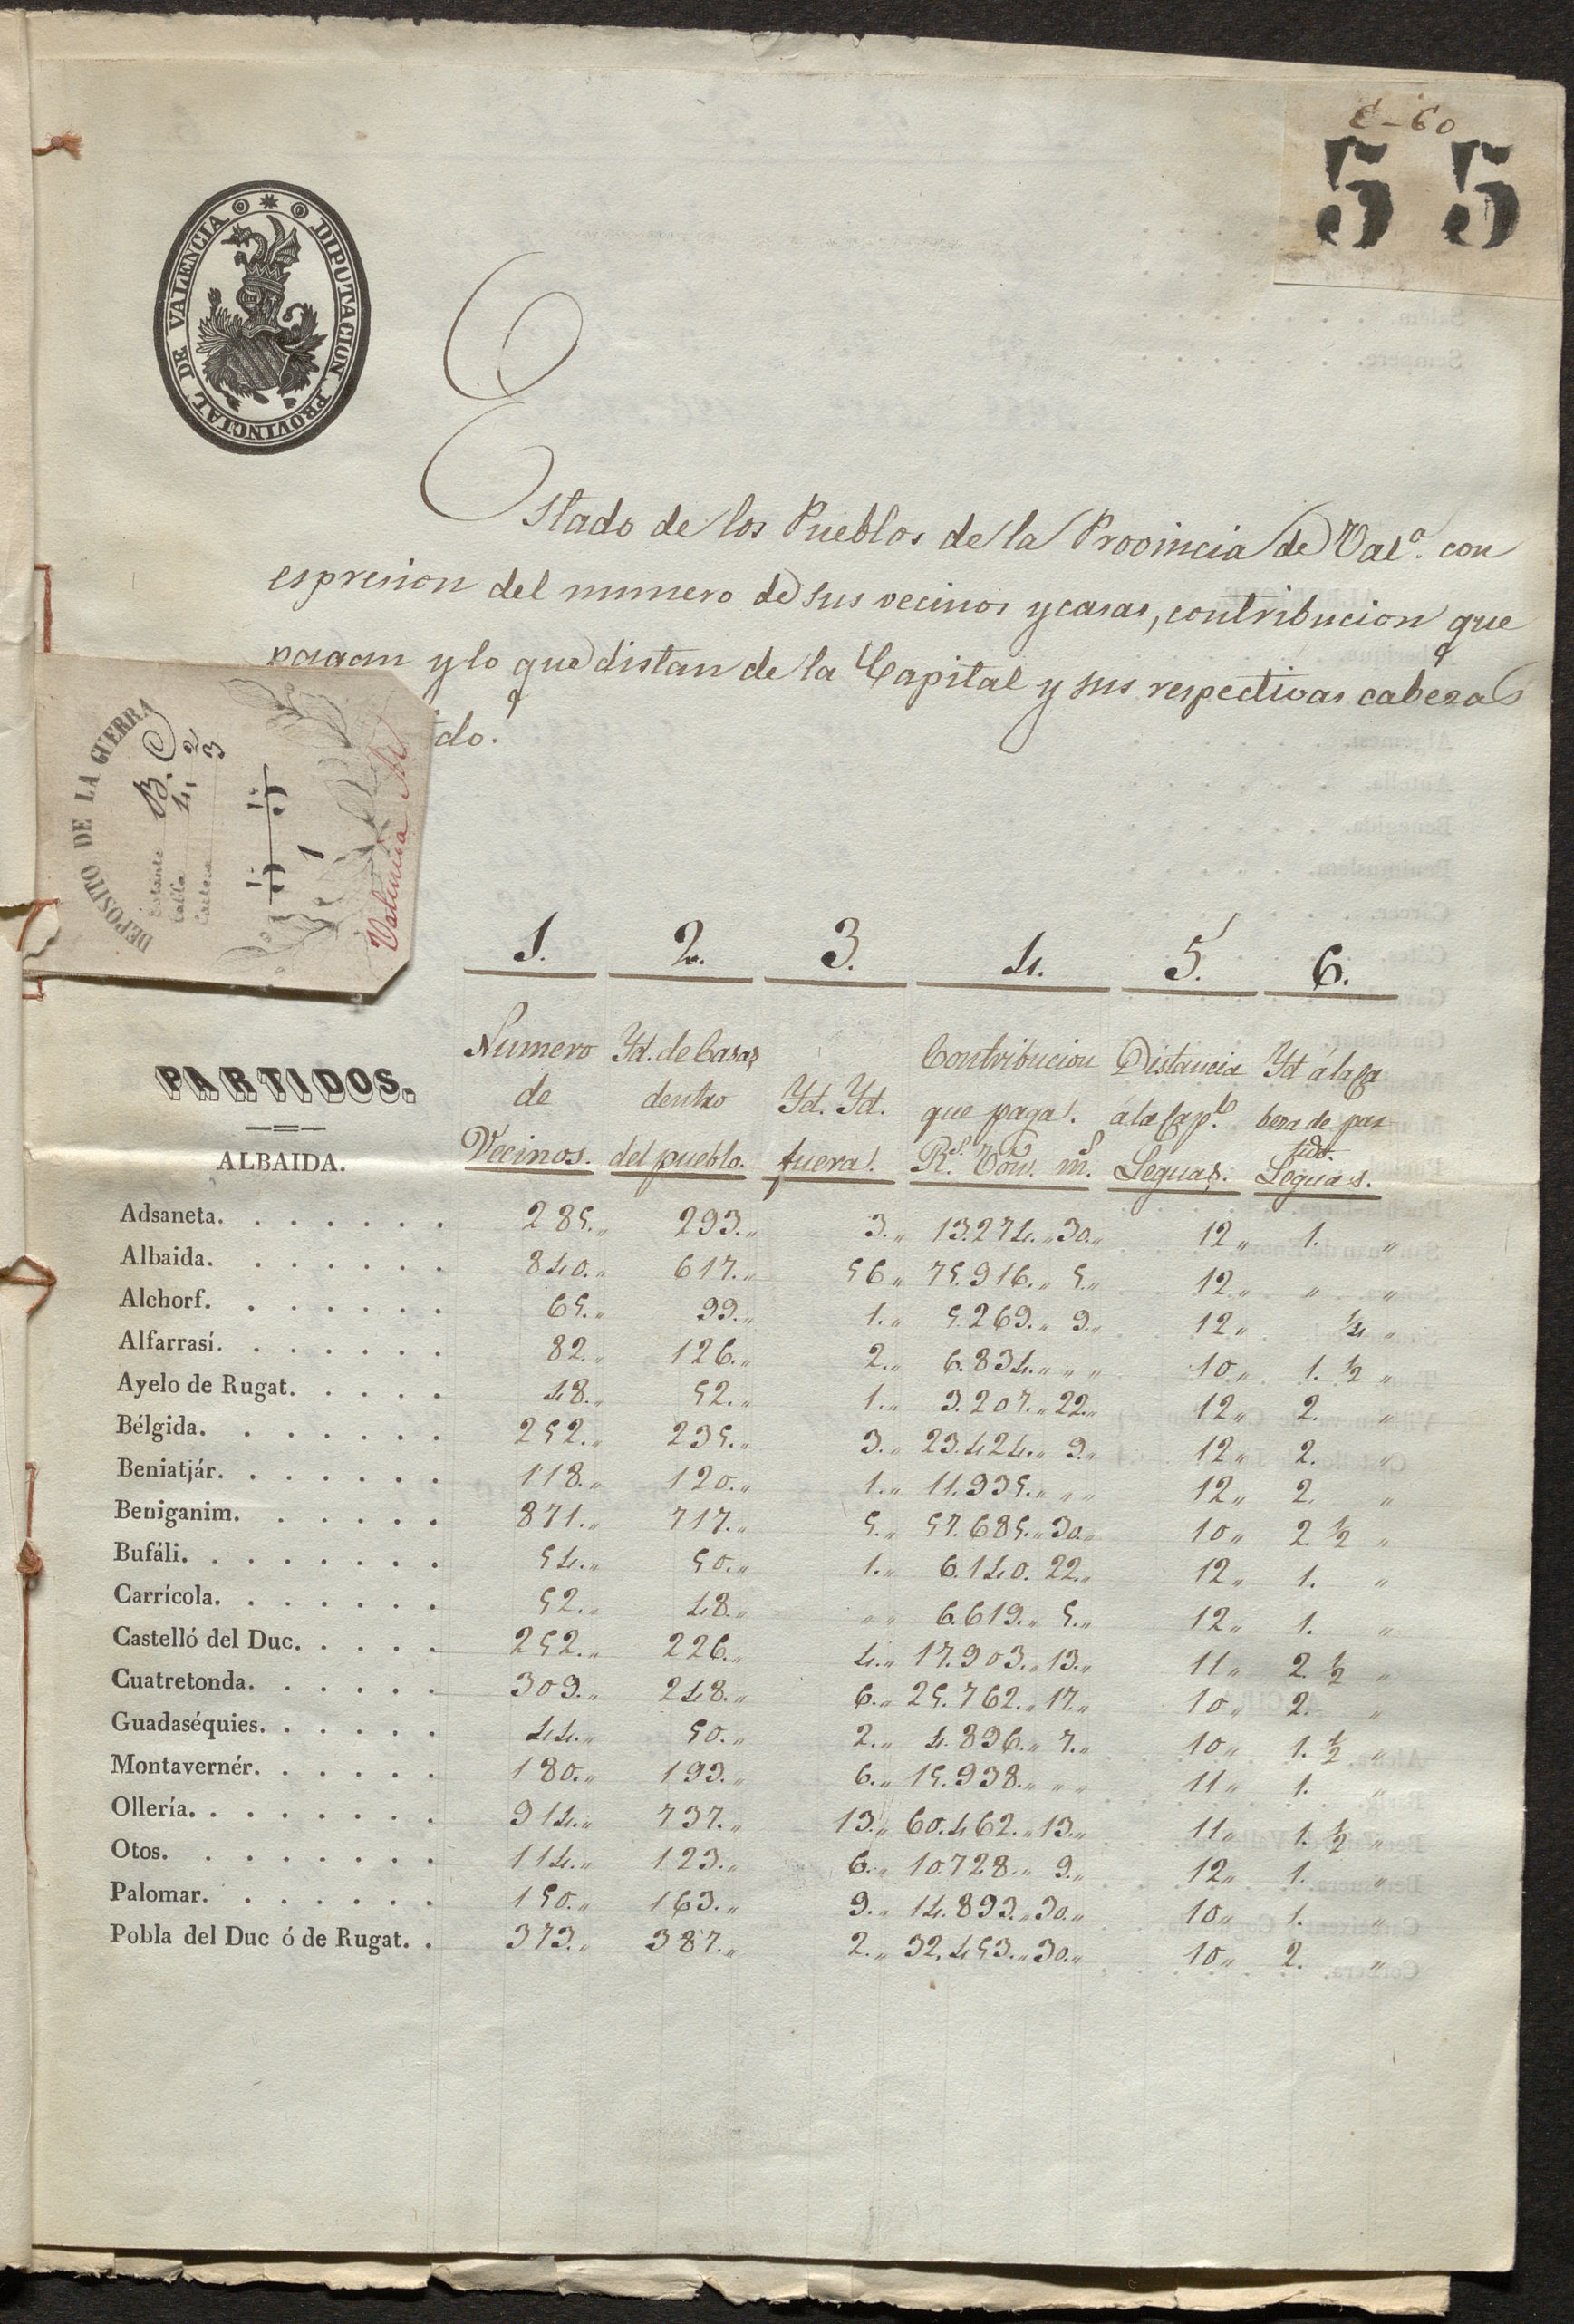 E-60
55
DIPUTACION PROVINCIAL DE VALENCIA
Estado de los Pueblos de la Provincia de Val.ª con
espresion del numero de sus vecinos y casas, contribucion que
pagan y lo que distan de la Capital y sus respectivas cabezas
do.
DEPOSITO DE LA GUERRA
Estante B. C
Tabla 4, 2
Cartera 3
1
Valencia
1. 2. 3. 4. 5. 6.
PARTIDOS.
ALBAIDA.
Numero Yd. de Casas Contribucion Distancia Yd á la ca
de dentro Yd. Yd. que paga. á la Cap.l beza de par
tido.
Vecinos. del pueblo. fuera. R.s Von. m.s Leguas. Leguas.
Adsaneta. 285.„ 293.„ 3.„ 13.274.„ 30.„ 12„ 1. „
Albaida. 840.„ 617.„ 56„ 75.916.„ 5.„ 12„ „ „
Alchorf. 65.„ 99.„ 1.„ 5.269.„ 9.„ 12„ ¼ „
Alfarrasí. 82.„ 126.„ 2.„ 6.834.„ „ „ 10„ 1. ½ „
Ayelo de Rugat. 48.„ 52.„ 1.„ 3.207.„ 22.„ 12„ 2. „
Bélgida. 252.„ 235.„ 3.„ 23.424.„ 9.„ 12„ 2. „
Beniatjár. 118.„ 120.„ 1.„ 11.935.„ „ „ 12„ 2. „
Beniganim. 871.„ 717.„ 5.„ 57.685.„ 30.„ 10„ 2 ½ „
Bufáli. 54.„ 50.„ 1.„ 6.140. 22.„ 12„ 1. „
Carrícola. 52.„ 48.„ „ „ 6.619.„ 5.„ 12„ 1. „
Castelló del Duc. 252.„ 226.„ 4.„ 17.903.„ 13.„ 11„ 2 ½ „
Cuatretonda. 309.„ 248.„ 6.„ 25.762.„ 17.„ 10„ 2. „
Guadaséquies. 44.„ 50.„ 2.„ 4.896.„ 7.„ 10„ 1. ½ „
Montavernér. 180.„ 193.„ 6.„ 15.938.„ „ „ 11„ 1. „
Ollería. 914.„ 737.„ 13.„ 60.462.„ 13.„ 11„ 1. ½ „
Otos. 114.„ 123.„ 6.„ 10.728.„ 9.„ 12„ 1. „
Palomar. 150.„ 163.„ 9.„ 14.893.„ 30.„ 10„ 1. „
Pobla del Duc ó de Rugat. 373.„ 387.„ 2.„ 32.453.„ 30.„ 10„ 2. „